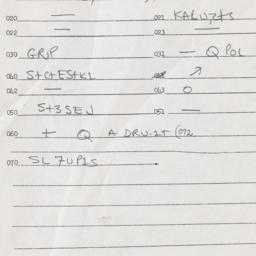 020 — 021 KALU7±S
022 — 023 —
030 GRJP 031 — Q POL
040 S+C+ES+K1 ↗
042 — 043 O
050 S+3SEJ 051 —
060 + Q A DRU.IT (072
070 SL7UP1S .